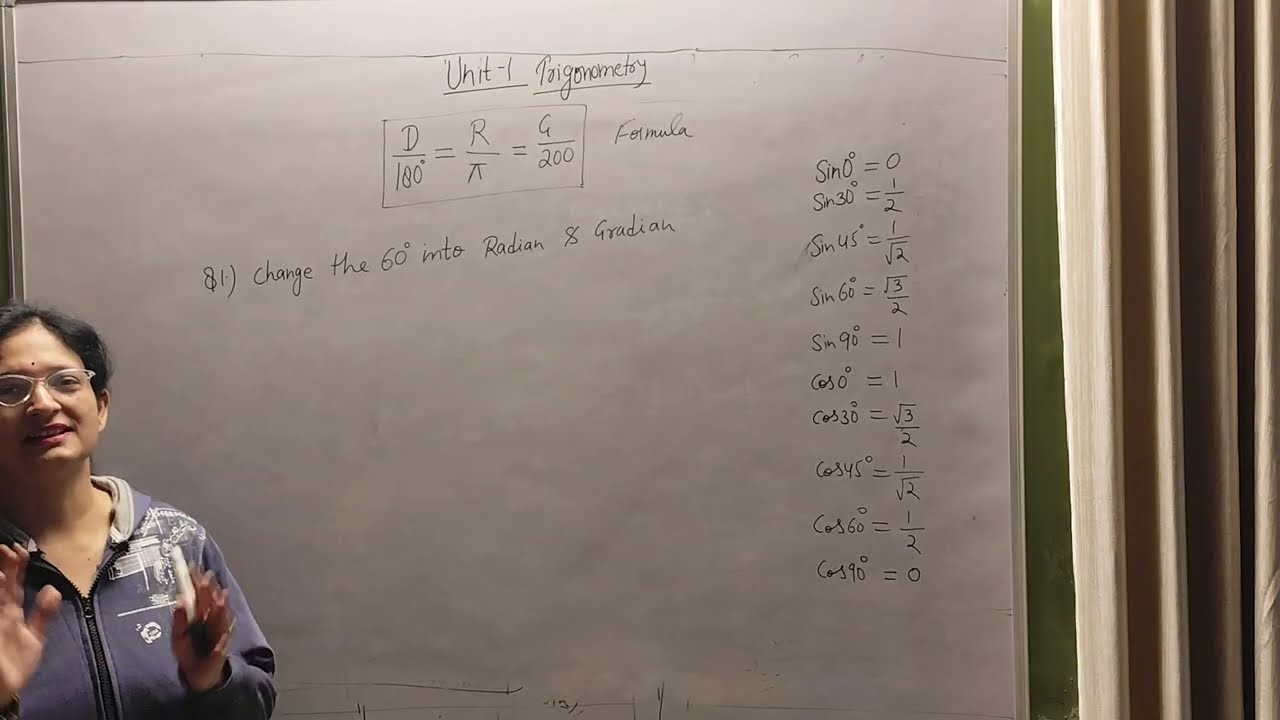 Unit-1 Trigonometry
D/180° = R/π = G/200 Formula
Q1.) Change the 60° into Radian & Gradian
Sin0° = 0
Sin30° = 1/2
Sin45° = 1/√2
Sin60° = √3/2
Sin90° = 1
Cos0° = 1
Cos30° = √3/2
Cos45° = 1/√2
Cos60° = 1/2
Cos90° = 0